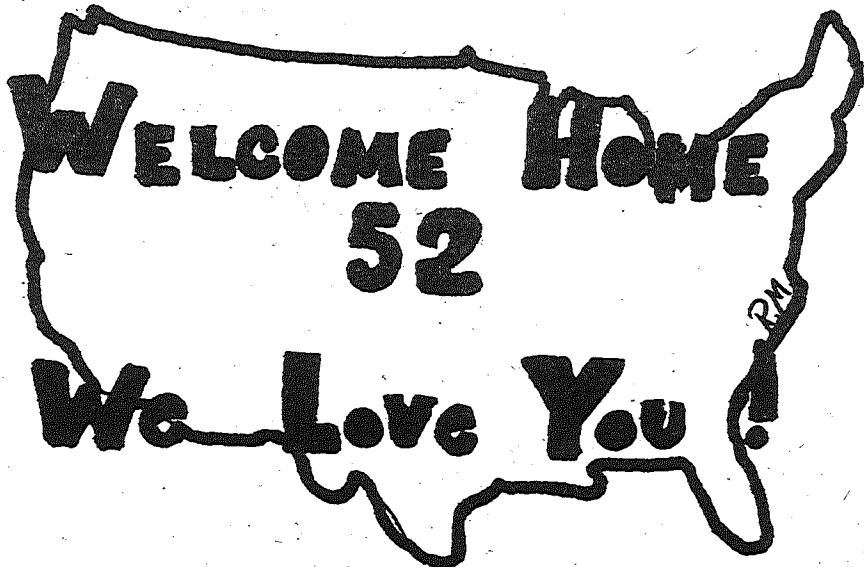 WELCOME HOME
52
We LOVe YOU !
R.M.